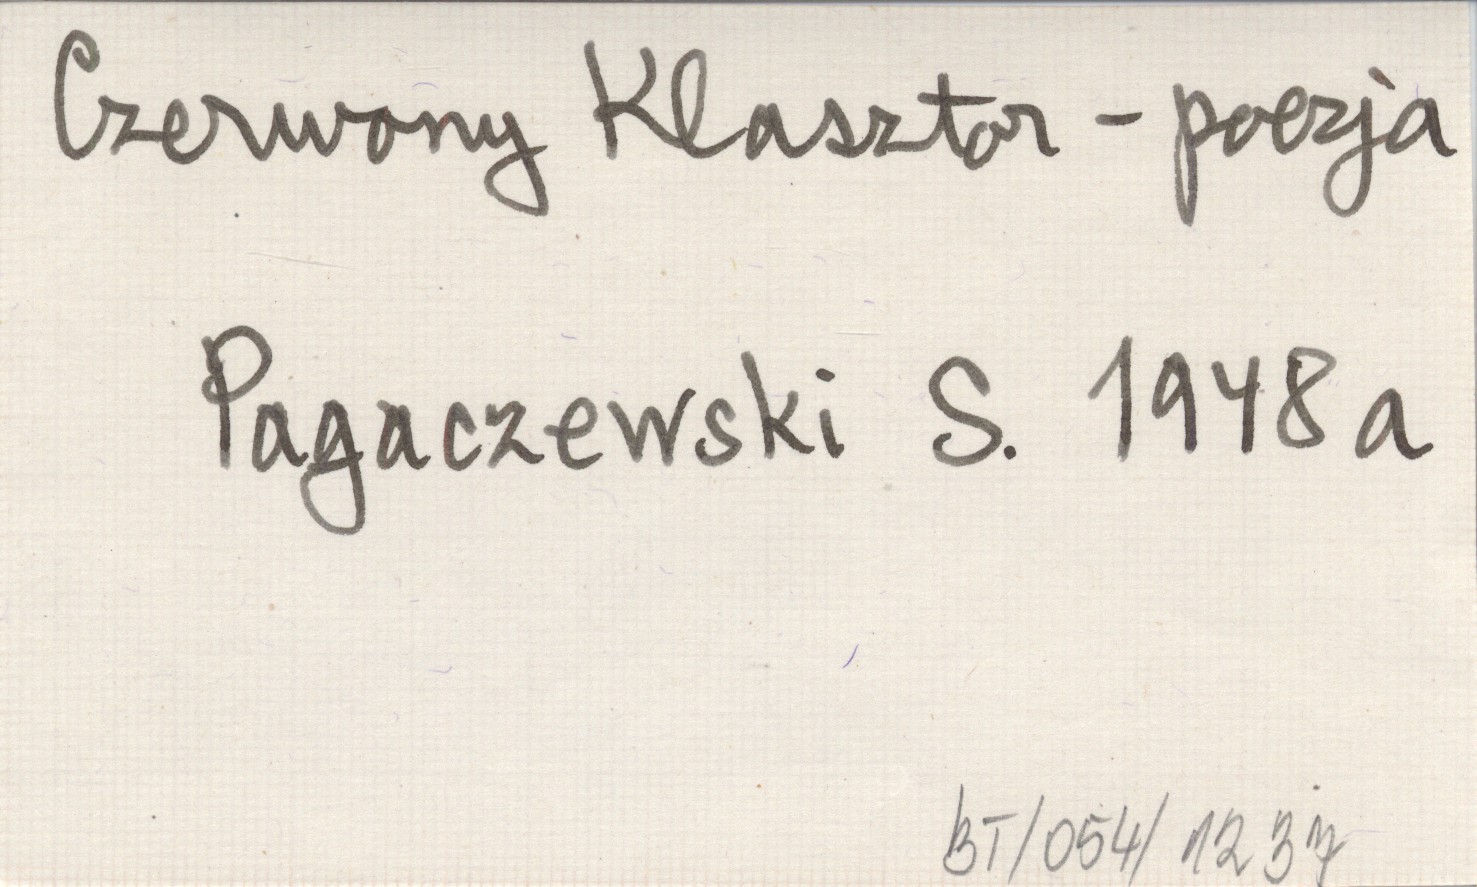 Czerwony Klasztor - poezja
Pagaczewski S. 1948a
BT/054/1237